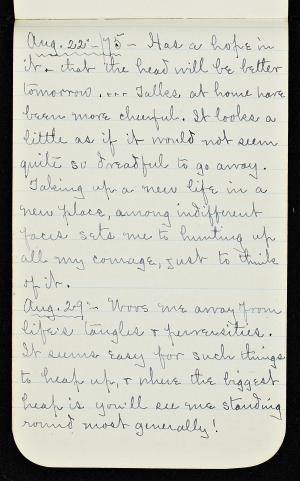 Aug. 22:-'75 - Has a hope in
it. that the head will be better
tomorrow. ... Talks at home have
been more cheerful. It looks a
little as if it would not seem
quite so dreadful to go away.
Taking up a new life in a
new place, among indifferent
faces sets me to hunting up
all my courage, just to think
of it.
Aug. 29:- Wove me away from
life's tangles & perversities.
It seems easy for such things
to heap up, & where the biggest
heap is you'll see me standing
round most generally!